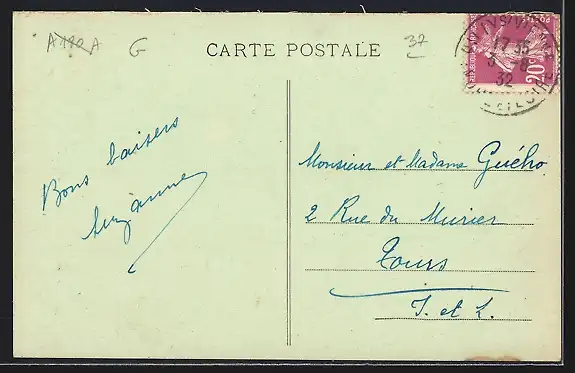 A 190 A
G
CARTE POSTALE
37
20c
17 35
5 - 8
32
Bons baisers
Suzanne
Monsieur et Madame Guého
2 Rue du Murier
Tours
I. et L.